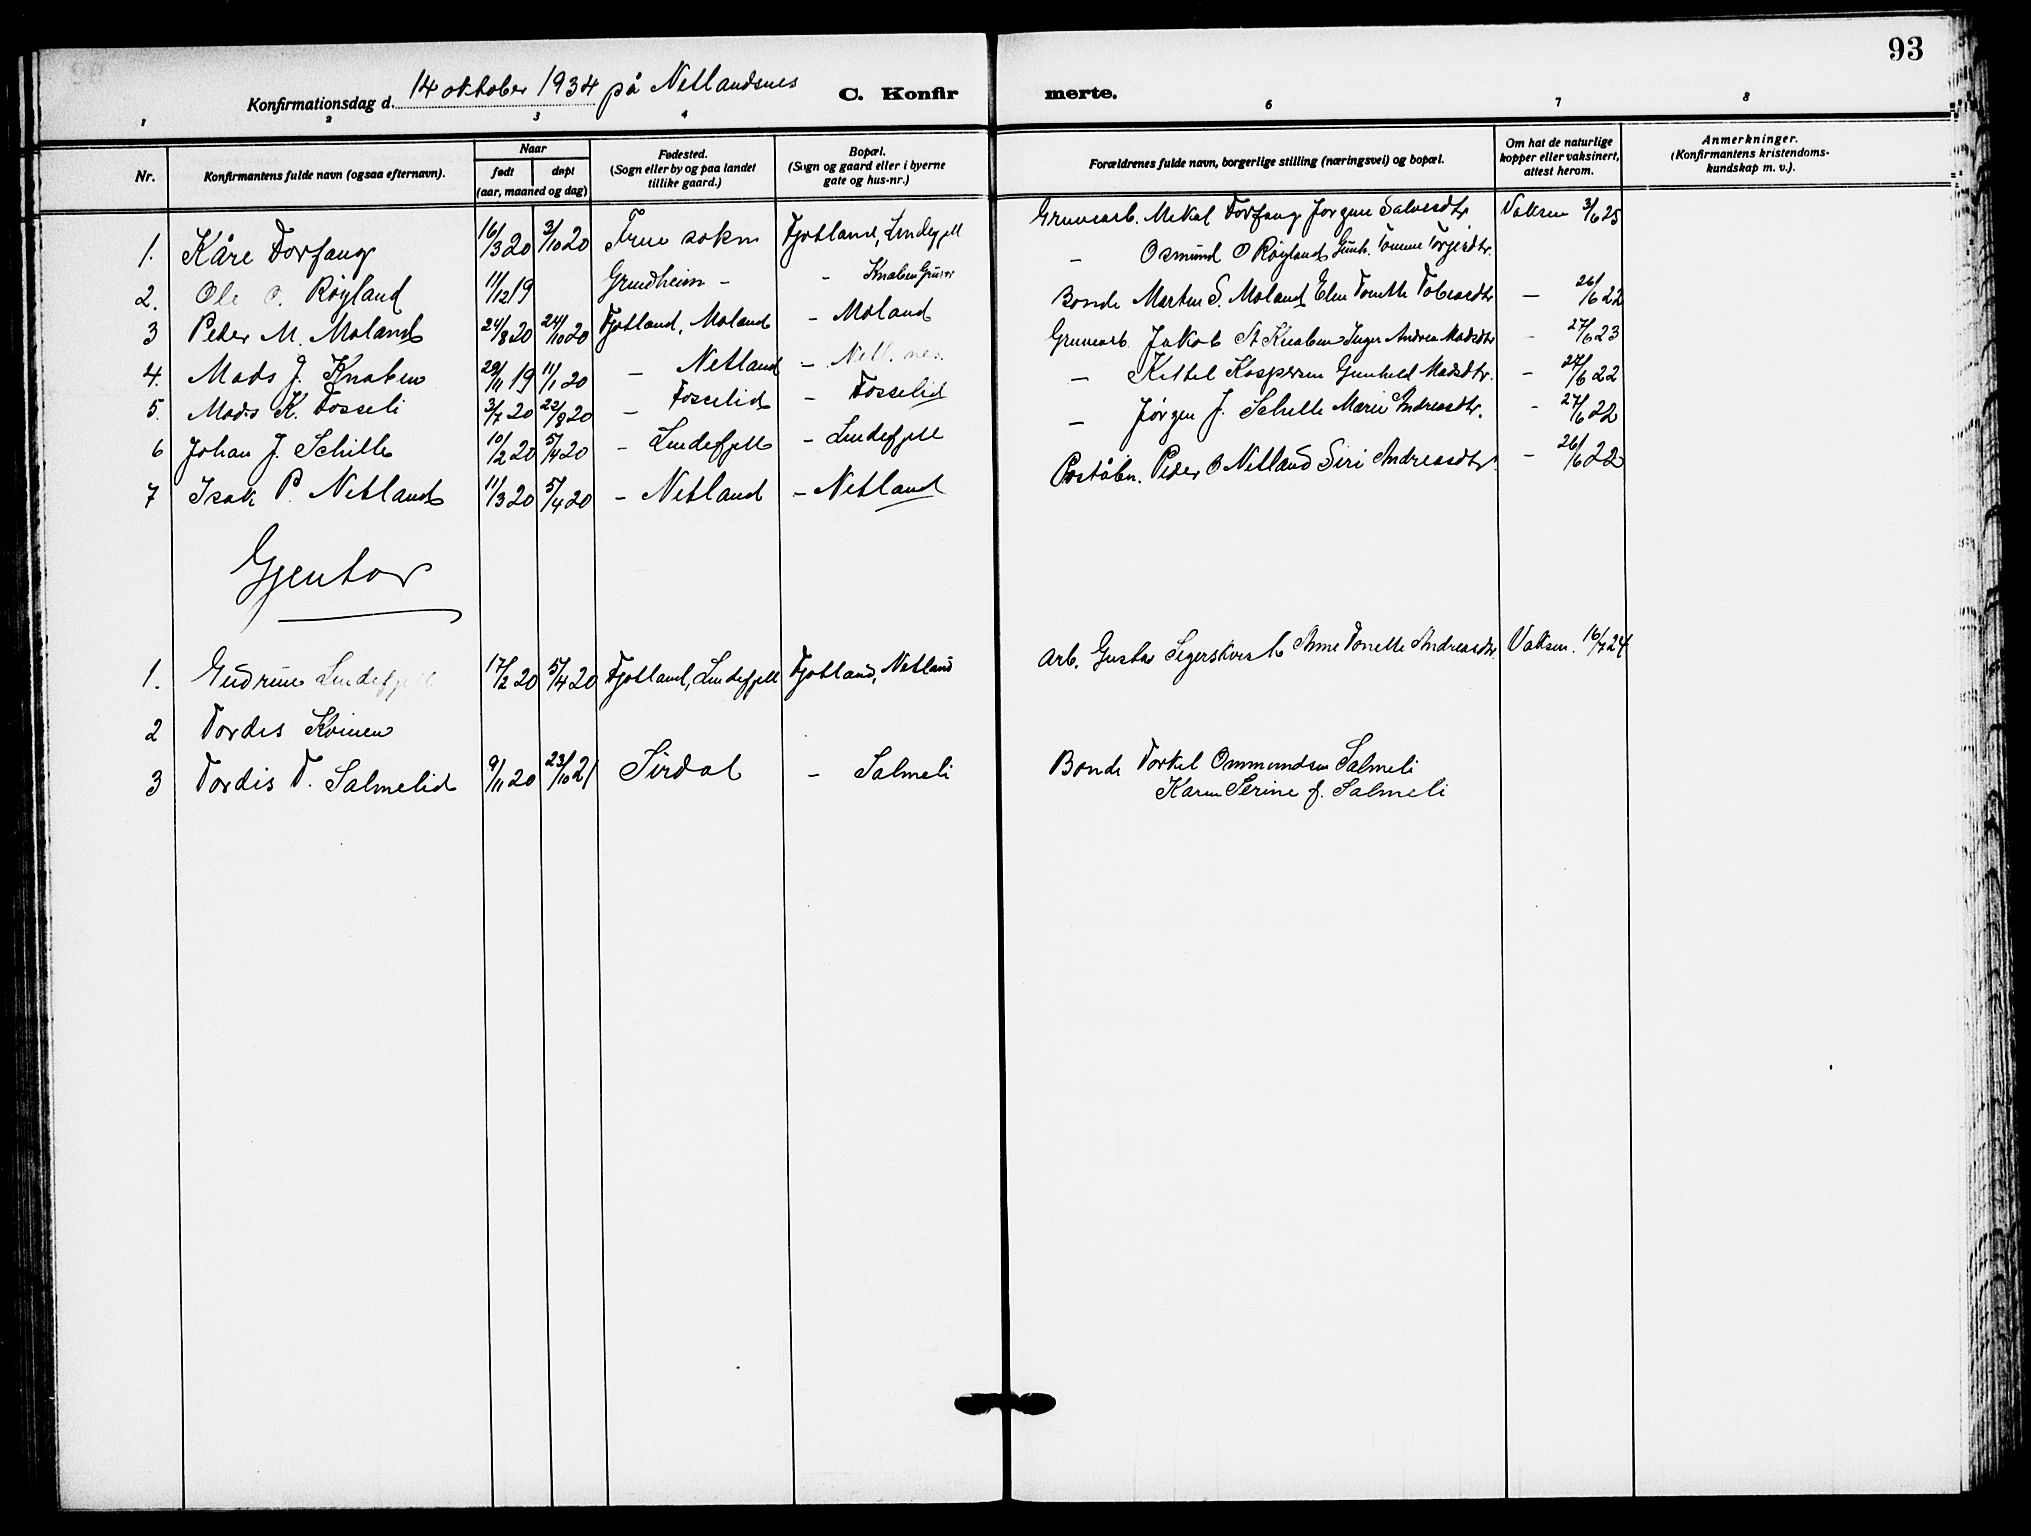 93
Konfirmationsdag d. 14 oktober 1934 på Netlandsnes
C. Konfir merte.
1 2 3 4 6 7 8
Nr.
Konfirmantens fulde navn (ogsaa efternavn).
Naar
født døpt
(aar, maaned og dag)
Fødested.
(Sogn eller by og paa landet
tillike gaard.)
Bopæl.
(Sogn og gaard eller i byerne
gate og hus-nr.)
Forældrenes fulde navn, borgerlige stilling (næringsvei) og bopæl.
Om hat de naturlige
kopper eller vaksinert,
attest herom.
Anmerkninger.
(Konfirmantens kristendoms-
kundskap m. v.).
1. Kåre Forfang 16/3 20 3/10 20 sokn Fjotland, Lindefjell Gruvearb. Mikal Forfang Jørgine Salvesdtr Vaksin 3/6 25
2. Ole O. Røyland 11/12 19 Grindheim - - Knaben Gruver - Osmund O Røyland Gunh. Tomine Torjesdtr.
3 Peder M. Moland 24/8 20 24/10 20 Fjotland, Moland - Moland Bonde Martin S. Moland Elen Tonette Tobiasdtr - 26/6 22
4. Mads J. Knaben 29/11 19 11/1 20 - Netland - Netl. nes Gruvearb. Jakob St Knaben Inger Andrea Madsdtr - 27/6 23
5. Mads K. Fosseli 3/7 20 22/8 20 - Fosselid - Fosselid - Kittel Kaspersen Gunhild Madsdtr. - 27/6 22
6 Johan J. Schille 10/2 20 5/4 20 - Lindefjell - Lindefjell - Jørgen J. Schille Marie Andreasdtr. - 27/6 22
7 Isak P. Netland 11/3 20 5/4 20 - Netland - Netland Poståbn. Peder O Netland Siri Andreasdtr. - 26/6 22
Gjentor
1. Gudrun Lindefjell 17/2 20 5/4 20 Fjotland, Lindefjell Fjotland, Netland Arb. Gustav Segerskvist Anne Tonette Andreasdtr. Vaksin. 16/7 24
2 Tordis Kvinen
3 Tordis T. Salmelid 9/11 20 23/10 21 Sirdal - Salmeli Bonde Torkel Ommundsen Salmeli
Karen Serine f. Salmeli